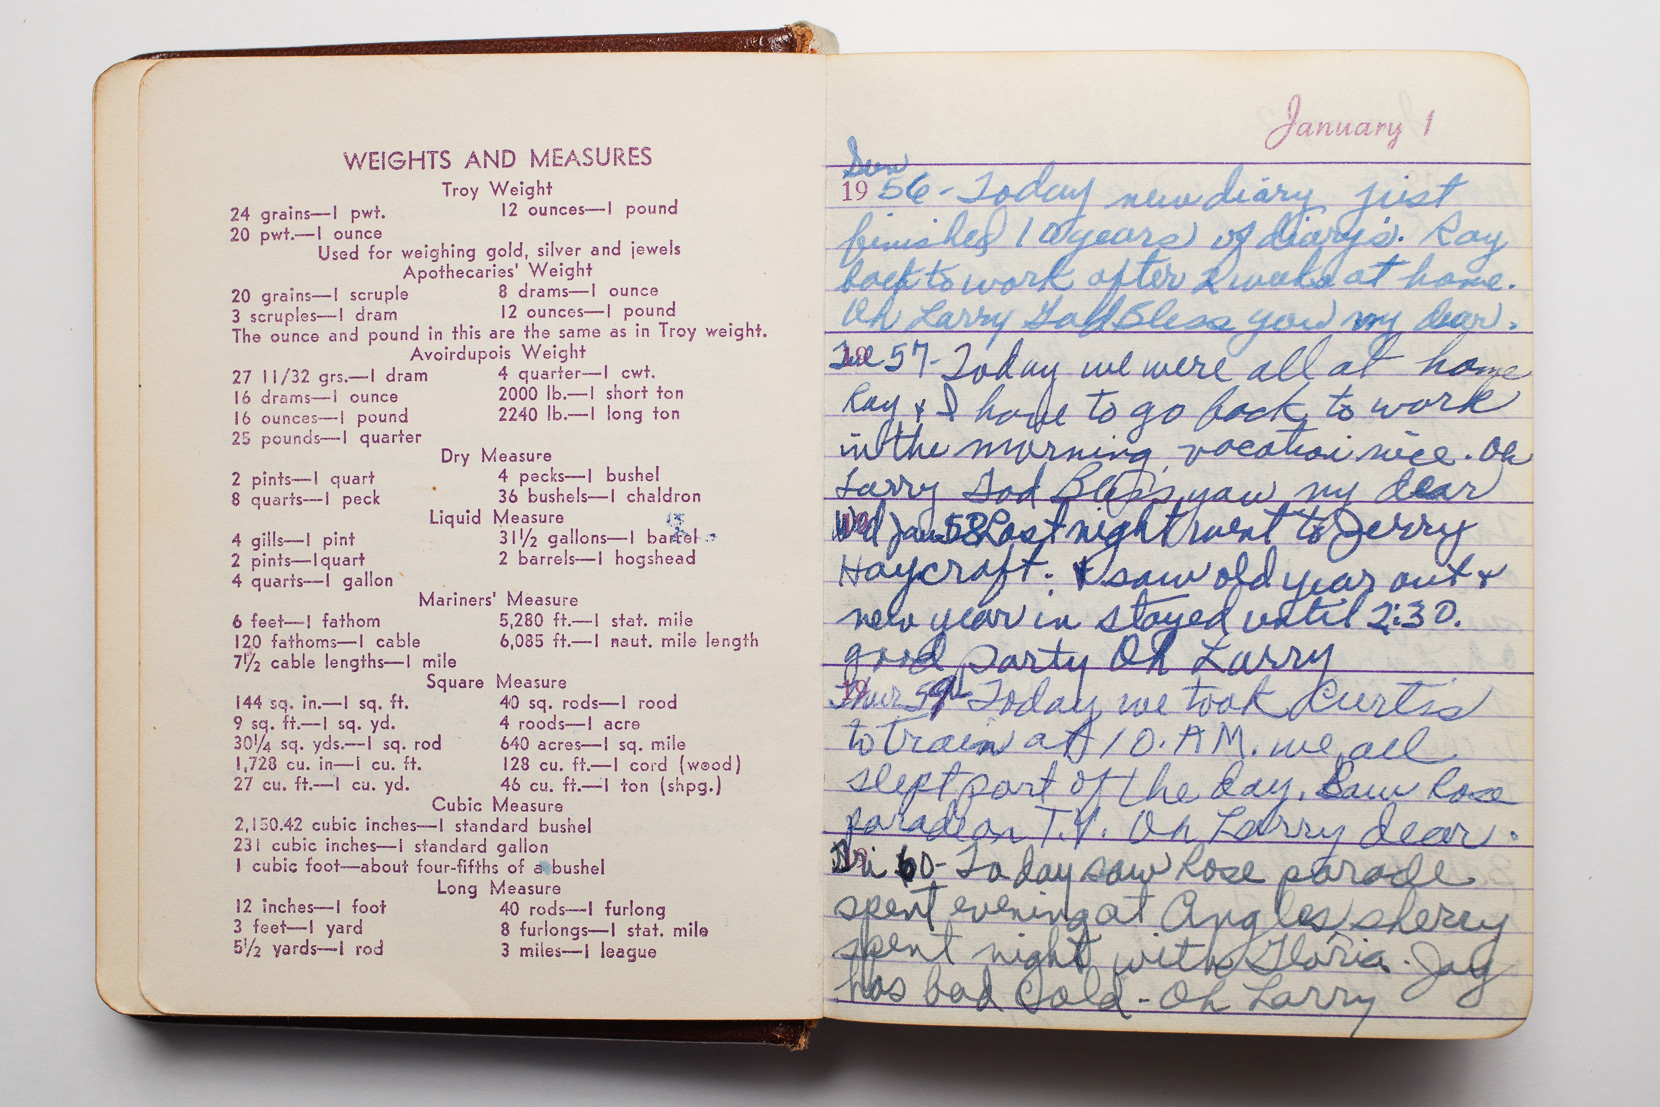 WEIGHTS AND MEASURES
Troy Weight
24 grains—1 pwt. 12 ounces—1 pound
20 pwt.—1 ounce
Used for weighing gold, silver and jewels
Apothecaries' Weight
20 grains—1 scruple 8 drams—1 ounce
3 scruples—1 dram 12 ounces—1 pound
The ounce and pound in this are the same as in Troy weight.
Avoirdupois Weight
27 11/32 grs.—1 dram 4 quarter—1 cwt.
16 drams—1 ounce 2000 lb.—1 short ton
16 ounces—1 pound 2240 lb.—1 long ton
25 pounds—1 quarter
Dry Measure
2 pints—1 quart 4 pecks—1 bushel
8 quarts—1 peck 36 bushels—1 chaldron
Liquid Measure
4 gills—1 pint 31½ gallons—1 barrel
2 pints—1quart 2 barrels—1 hogshead
4 quarts—1 gallon
Mariners' Measure
6 feet—1 fathom 5,280 ft.—1 stat. mile
120 fathoms—1 cable 6,085 ft.—1 naut. mile length
7½ cable lengths—1 mile
Square Measure
144 sq. in.—1 sq. ft. 40 sq. rods—1 rood
9 sq. ft.—1 sq. yd. 4 roods—1 acre
30¼ sq. yds.—1 sq. rod 640 acres—1 sq. mile
1,728 cu. in—1 cu. ft. 128 cu. ft.—1 cord (wood)
27 cu. ft.—1 cu. yd. 46 cu. ft.—1 ton (shpg.)
Cubic Measure
2,150.42 cubic inches—1 standard bushel
231 cubic inches—1 standard gallon
1 cubic foot—about four-fifths of a bushel
Long Measure
12 inches—1 foot 40 rods—1 furlong
3 feet—1 yard 8 furlongs—1 stat. mile
5½ yards—1 rod 3 miles—1 league
January 1
Sun
19 56 - Today new diary just
finished 10 years of diary's. Ray
back to work after 2 weeks at home.
Oh Larry God Bless you my dear.
Tue 19 57 - Today we were all at home
Ray & I have to go back to work
in the morning, vacation nice. Oh
Larry God Bless you my dear
Wed Jan 19 58 Last night went to Jerry
Haycraft. & saw old year out &
new year in stayed until 2:30.
good party Oh Larry
Thur 19 59 - Today we took Curtis
to train at 10. A.M. we all
slept part of the day. Saw Rose
parade on T.V. Oh Larry dear.
Fri 19 60 - Today saw Rose parade
spent evening at Angles, sherry
spent night with Gloria. Jay
has bad Cold - Oh Larry